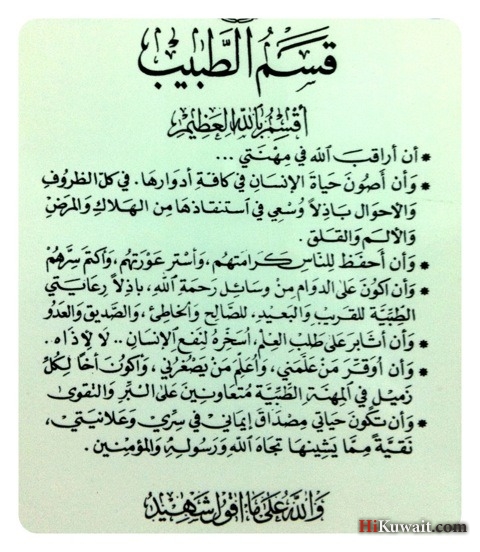 قَسَمُ الطَّبيب
أقسِمُ بِاللهِ العَظِيمِ
* أن أراقبَ اللّه في مِهنَتي ...
* وَأن أصُونَ حيَاة الإنسَانِ في كافّةِ أدوَارهَا. في كلّ الظروُفِ
وَالأحوَال بَاذِلاً وُسْعِي في استنقاذهَا مِن الهَلاكِ وَالمرَضِ
وَالألَم وَالقَلَق.
* وَأن أحفَظ لِلنّاسِ كرَامَتهُم، وَأستر عَوْرَتهُم، وَأكتمَ سِرّهُمْ
* وَأن أكونَ عَلى الدوَام مِن وسَائِل رَحمَة اللهِ، بَاذِلاً رِعَايَتي
الطِّبيَّة للقَريب وَالبَعيد. للصَّالِح وَالخاطِئ، وَالصَّديق وَالعَدوُ
* وَأن أثابر عَلى طلبِ العِلم، أسَخّرهُ لنَفع الإنسَانِ .. لَا لأذاه.
* وَأن أوَقّرَ مَن عَلّمَني، وَأعَلّمَ مَن يَصْغرُني، وَأكونَ أخاً لِكُلّ
زَمِيل في المِهنَةِ الطّبّيَّة مُتعَاونينَ عَلى البِّر وَالتقوىٰ
* وَأن تكونَ حيَاتي مِصْدَاق إيمَاني في سِرّي وَعَلَانيَتي،
نَقيَّةً مِمَّا يَشينهَا تجَاه اللهِ وَرَسُولهِ وَالمؤمِنين.
وَاللهُ عَلى مَا أقولُ شَهِيد
HiKuwait.com